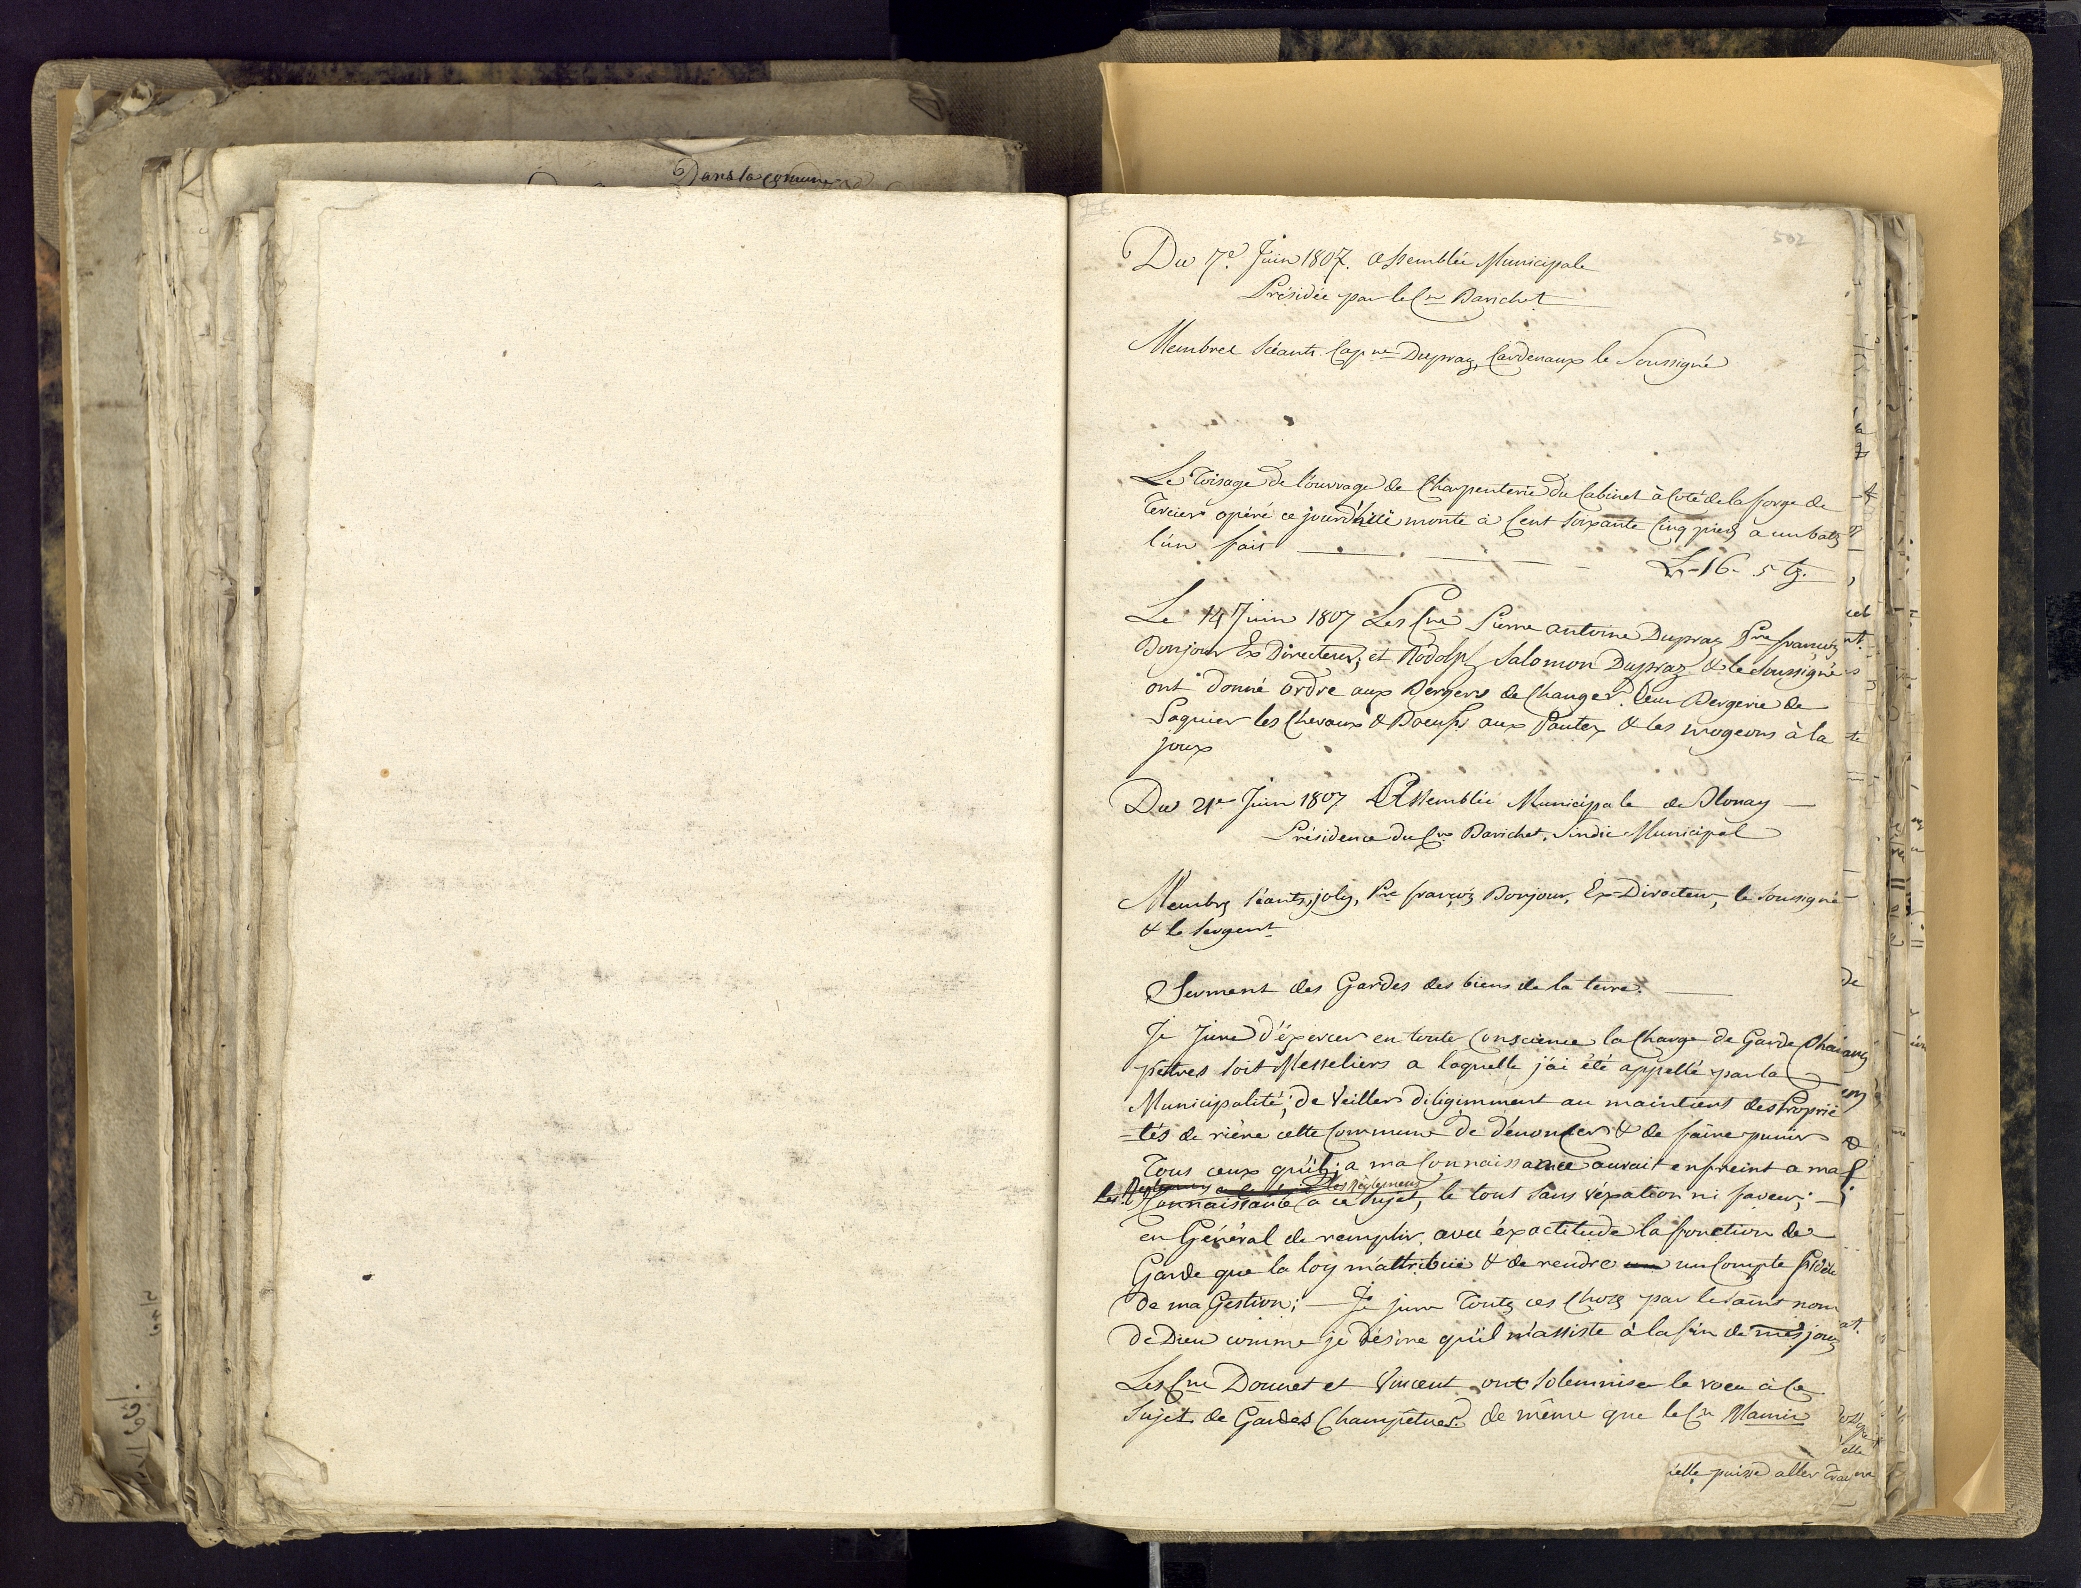 Dans la comune
502
Du 7e. Juin 1807. assemblée Municipale
Présidée par le Cn Barichet
Membres séants. Cap ne Dupraz, Cardenaux le Soussigné
Le Toisage de l'ouvrage de Charpenterie du Cabinet à Coté de la forge de
Tercier opéré ce jourd'hüi monte à Cent soixante Cinq pieds a un batz
l'un fait
L. 16 - 5 bz.
Le 14 Juin 1807 Les Cns Pierre antoine Dupraz Pre françois
Bonjour Ex Directeur, et Rodolph Salomon Dupraz & le Soussigné
ont donné ordre aux Bergers de Changer leur Bergerie de
Saquier les Chevaux & Boeufs aux Pautex & les mogeons à la
joux
Du 21e Juin 1807 Assemblée Municipale de Blonay
Présidence du Cn Barichet, Sindic Municipal
Membres séants, joly, Pre françois Bonjour, Ex-Directeur, le soussigné
& le sergent
Serment des Gardes des biens de la terre.
Je Jure d'éxercer en toute Conscience la Charge de Garde Cham
pêtres soit Messeliers a laquelle j'ai été appellé par la
Municipalité; de Veiller diligimment au maintient des Proprié
-tés de rière cette Commune de dénoncer & de faire punir
Tous ceux qu'il; a ma Connaissance aurait enfreint a ma
les règlemens
Connaissance a ce sujet, le tout sans véxation ni faveur;
en Général de remplir avec éxactitude la fonction de
Garde que la loy m'attribüe & de rendre un un Compte fidèle
de ma Gestion; — Je jure Toutes ces Choses par le saint nom
de Dieu comme je désire qu'il m'assiste à la fin de mes jours
Les Cns Donnet et Vincent ont solemnisé le voeu à ce
Sujet de Gardes Champêtres de même que le Cn Mamin
elle puisse aller